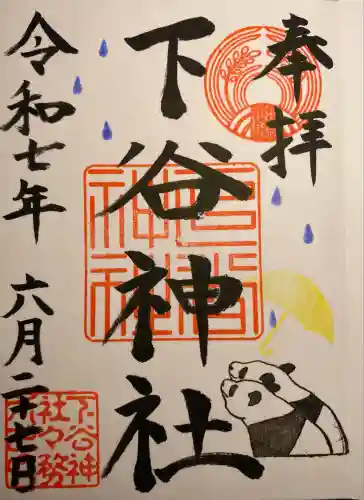 奉拝
下谷神社
令和七年 六月二十七日
下谷神社
下谷神社々務所